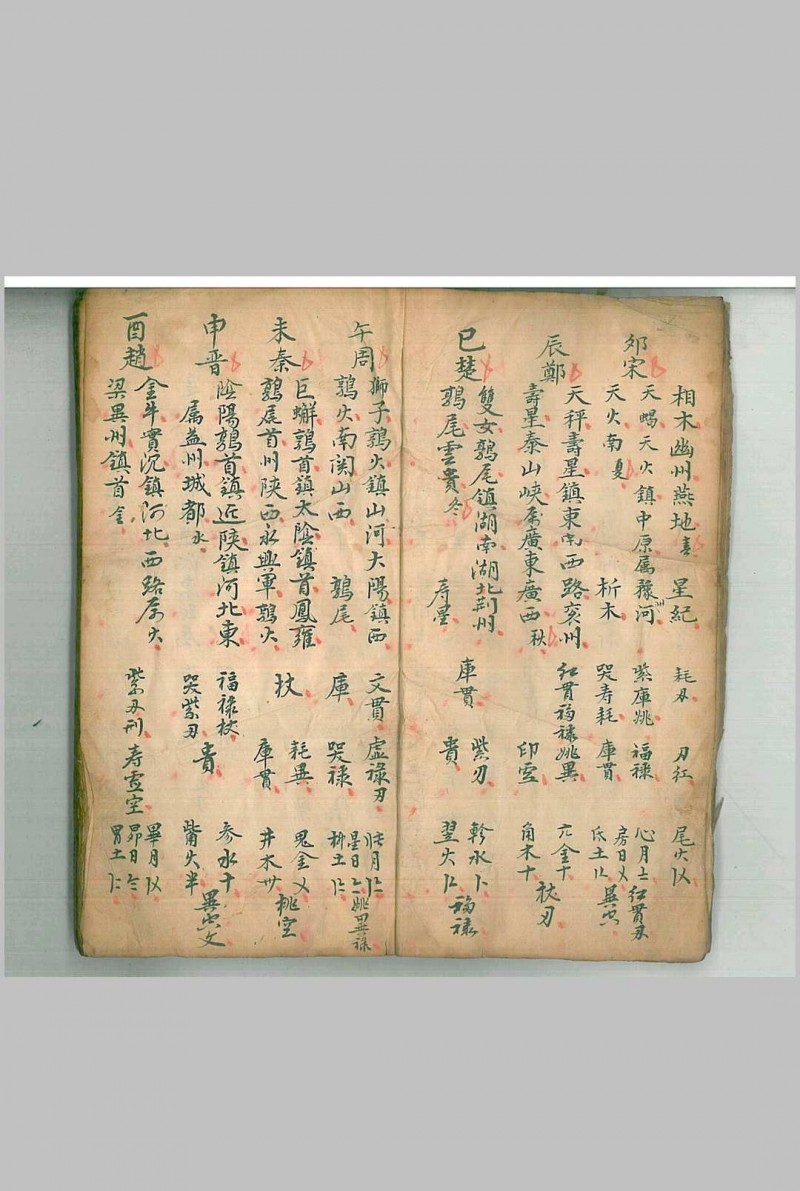 相木幽州燕地 星紀 耗刃 刃紅 尾火
卯宋 天蝎天火鎮中原属豫河 紫庫姚 福祿 心月 紅貫刃
天火南夏 析木 哭寿耗 庫貫 房日 氐土 異
辰鄭 天秤壽星鎮東南西路袞州 紅貫福祿姚異 亢金十 杖刃
壽星泰山峽属廣東廣西秋 印 角木十
巳楚 雙女鶉尾鎮湖南湖北荆州 紫刃 軫水 福祿
鶉尾雲貴冬 寿星 庫貫 貴 翌火
午周 獅子鶉火鎮山河大陽鎮西 文貫 虛祿刃 張月
鶉火南関山西 鶉尾 庫 哭祿 星日 柳土 姚異祿
未秦 巨蠏鶉首鎮太陰鎮首鳳雍 耗異 鬼金
鶉尾首州陝西永興軍鶉火 杖 庫貫 井木 桃空
申晋 陰陽鶉首鎮近陝鎮河北東 福祿杖 参水十
属益州城都水 哭紫刃 貴 觜火半 異 文
酉趙 金牛實沉鎮河北西路属火 畢月
梁異州鎮首金 紫刃刑 寿 空 昴日 胃土